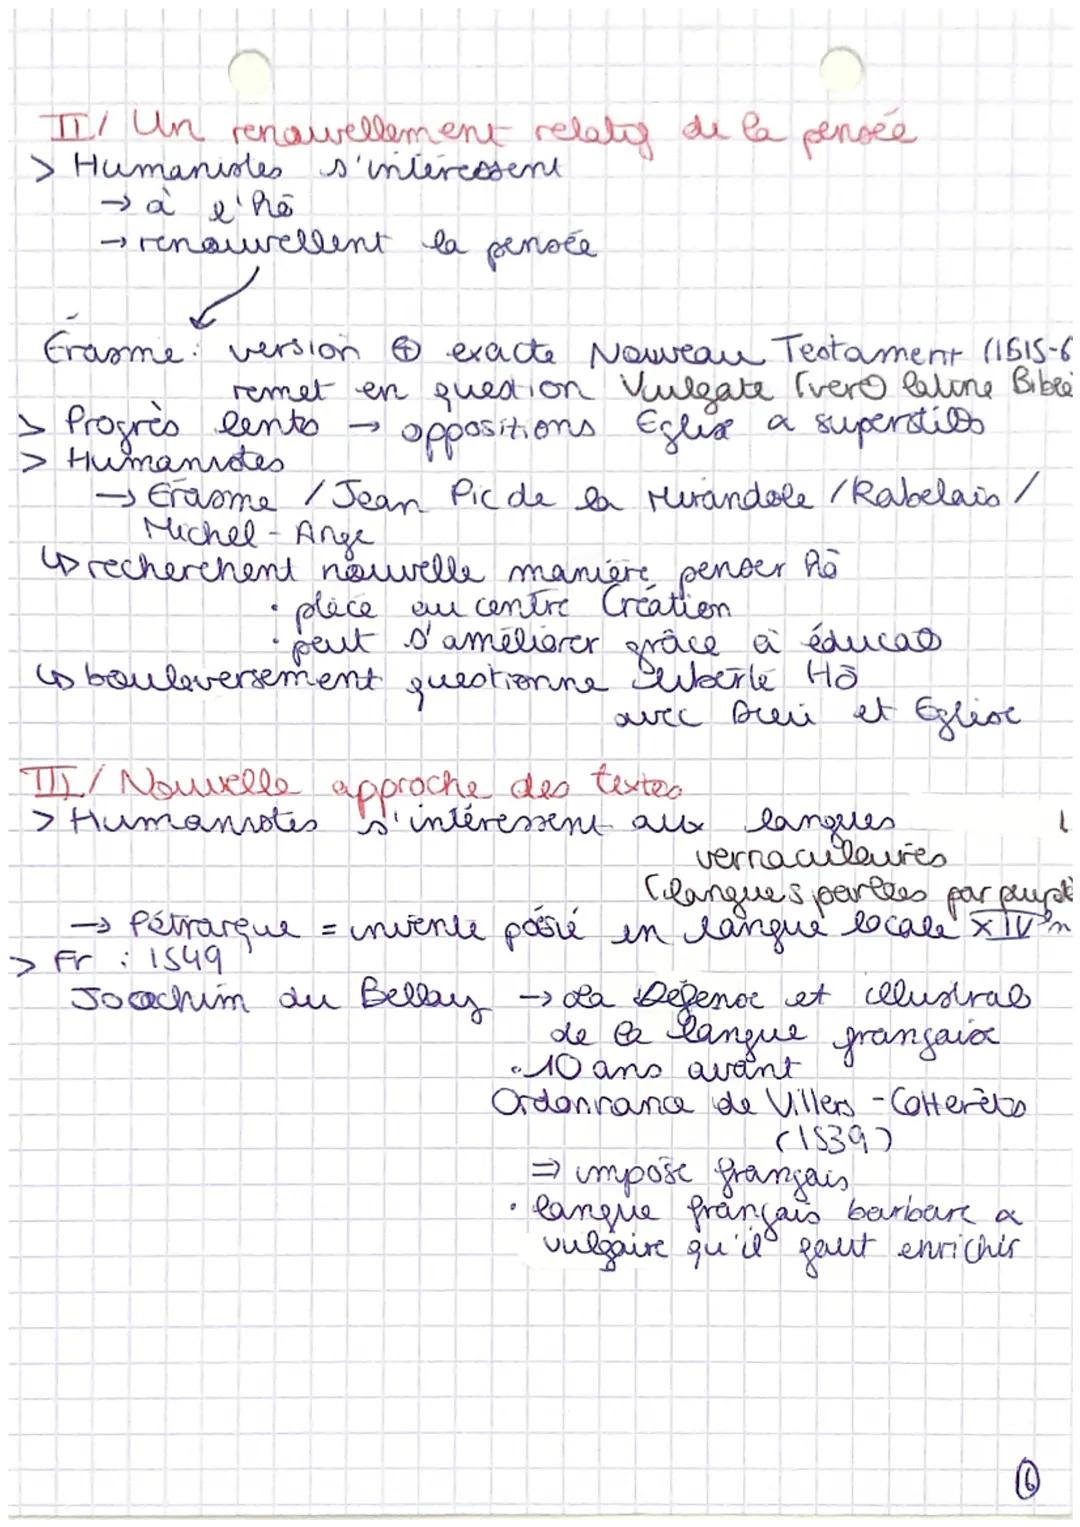 II/ Un renouvellement relatif de la pensée
> Humanistes s'intéressent
→ à l'hō
→ renouvellent la pensée
Érasme : version ⊕ exacte Nouveau Testament (1515-6
remet en question Vulgate (vero latine Bible
> Progrès lents → oppositions Eglise a superstito
> Humanistes
→ Erasme / Jean Pic de la Mirandole / Rabelais /
Michel-Ange
↳ recherchent nouvelle manière penser hō
• place au centre Création
• peut s'améliorer grâce à éducato
↳ bouleversement questionne liberté Hō
avec Dieu et Eglise
III/ Nouvelle approche des textes
> Humanistes s'intéressent aux langues
vernaculaires
(langues parlées par peupl
→ Pétrarque = invente poésie en langue locale XIVèm
> Fr : 1549
Joachim du Bellay → La Défense et illustrato
de la langue française
• 10 ans avant
Ordonnance de Villers-Cotterêts
(1539)
⇒ impose français
• langue français barbare a
vulgaire qu'il faut enrichir
6